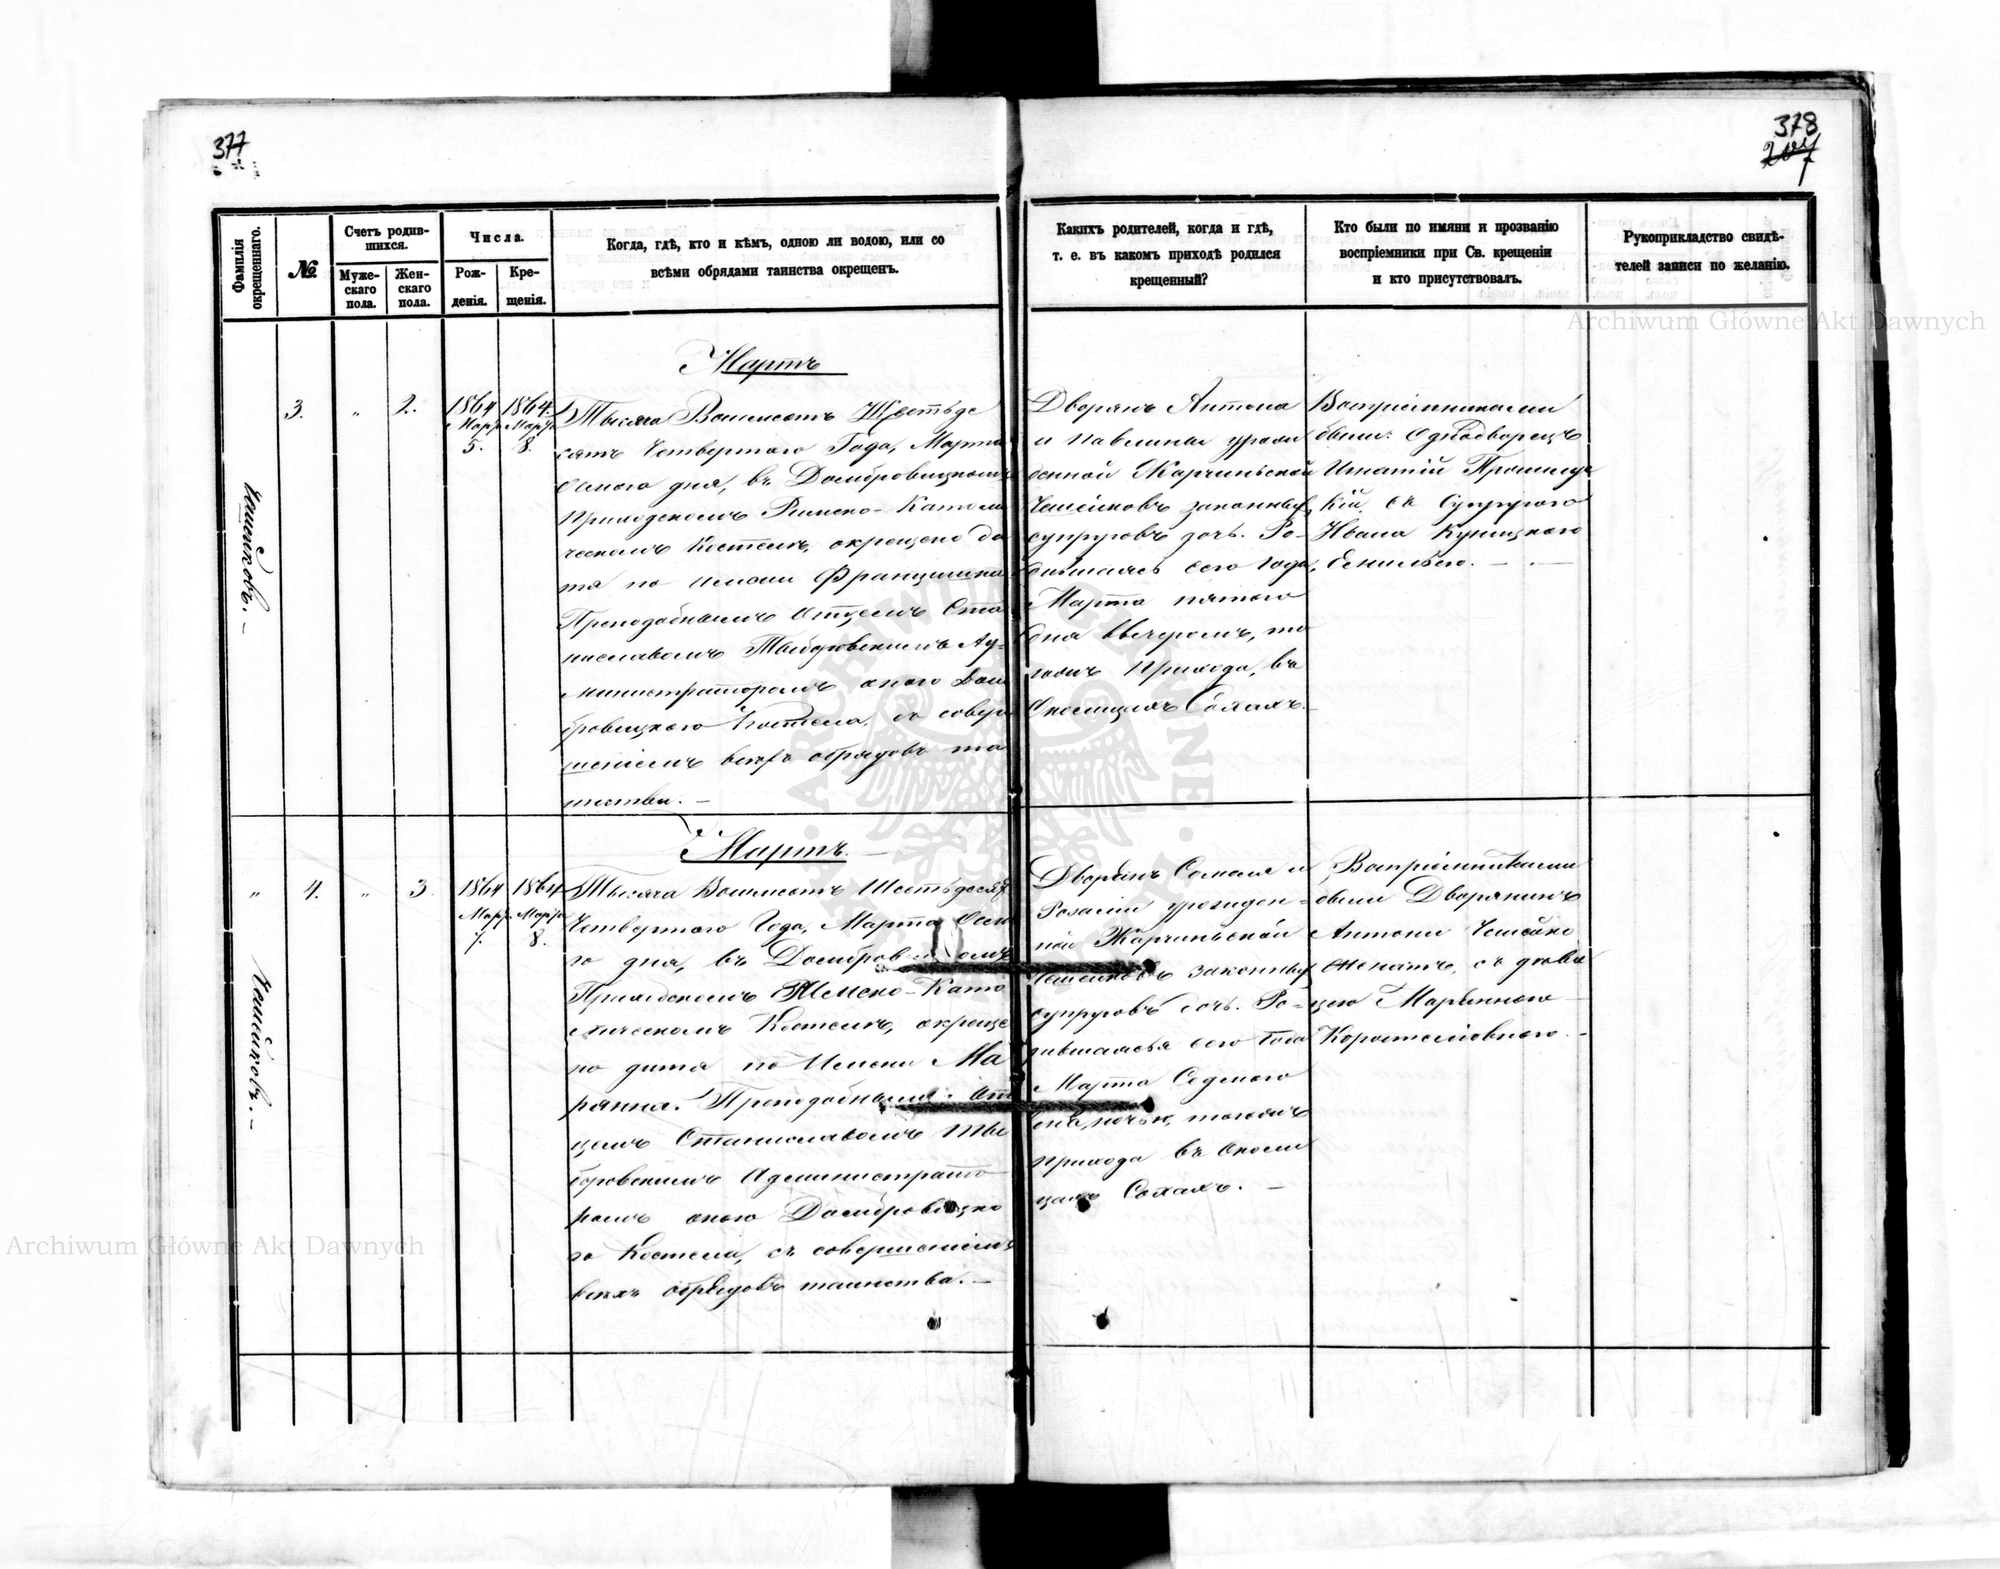 377
378
207
Фамилія окрещеннаго.
№
Счетъ родив-
шихся.
Муже-
скаго
пола.
Жен-
скаго
пола.
Числа.
Рож-
денія.
Кре-
щенія.
Когда, гдѣ, кто и кѣмъ, одною ли водою, или со
всѣми обрядами таинства окрещенъ.
Какихъ родителей, когда и гдѣ,
т. е. въ какомъ приходѣ родился
крещенный?
Кто были по имяни и прозванію
воспріемники при Св. крещеніи
и кто присутствовалъ.
Рукоприкладство свидѣ-
телей записи по желанію.
Мартъ
3. " 2. 1864 Мар. 5. 1864. Мар. 8.
Тысяча Восемсотъ Шестьде
сятъ Четвертого Года, Марта
Осмого дня, въ Домбровицкомъ
Приходскомъ Римско-Катол
ческомъ Костелѣ, окрещено ди
тя по имени Францишка
Преподобнымъ Отцемъ Ста
ниславомъ Ад-
министраторомъ оного Дом
бровицкого Костела, съ совер
шеніемъ всѣхъ обрядовъ та
инства. —
Дворянъ Антона
и Павлины урож
денной Жарчиньской
законныхъ
супруговъ дочь. Ро-
дившаяся сего года,
Марта пятого
дня ввечеромъ, то
гожъ Прихода, въ
Околицахъ Солахъ.
Воспріемниками
были: Однодворецъ
Игнатій
кій, съ Супругою
Ивана Купицкого
Емильею. —
Мартъ. —
" 4. " 3 1864 Мар. 7. 1864 Мар. 8.
Тысяча Восемсотъ Шестьдесятъ
Четвертого Года, Марта Осмо
го дня, въ Домбровицкомъ
Приходскомъ Римско-Като
лическомъ Костелѣ, окреще
но дитя по Имени Ма
рянна. Преподобнымъ От
цемъ Станиславомъ
Администрато
ромъ оного Домбровицко
го Костела, съ совершеніемъ
всѣхъ обрядовъ таинства. —
Дворянъ Самоля и
Розаліи урожден-
ной Жарчиньской
законныхъ
супруговъ дочь. Ро-
дившаяся сего Года
Марта Седмого
дня, ночью, тогожъ
прихода въ Околи
цахъ Солахъ. —
Воспріемниками
были Дворянинъ
Антони
съ дѣви
цею Марьянною
Archiwum Główne Akt Dawnych
Archiwum Główne Akt Dawnych
ARCHIWUM GŁÓWNE AKT DAWNYCH